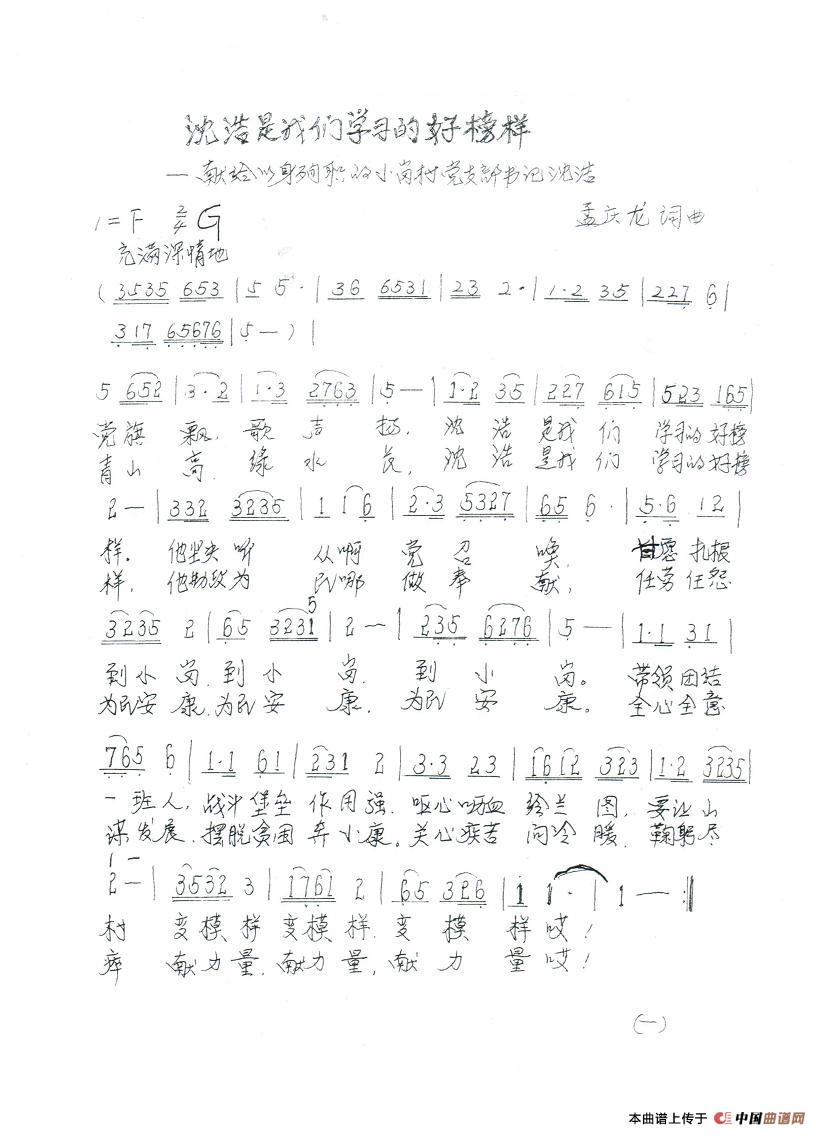 沈浩是我们学习的好榜样
—献给以身殉职的小岗村党支部书记沈浩
1=F 2/4 G 孟庆龙 词曲
充满深情地
(3535 653 | 5 5· | 36 6531 | 23 2· | 1·2 35 | 227 6 |
317 65676 | 5 — ) |
5 652 | 3·2 | 1·3 2763 | 5 — | 1·2 35 | 227 615 | 523 165 |
党旗 飘,歌 声 扬,沈 浩 是我 们 学习的好榜
青山 高,绿 水 长,沈 浩 是我 们 学习的好榜
2 — | 332 3235 | 1 1 6 | 2·3 5327 | 65 6· | 5·6 12 |
样。他坚决听 从啊 党 召 唤, 愿 扎根
样,他勤政为 民哪 做 奉 献, 任劳任怨
3235 2 | 65 3231 5 | 2 — | 235 6276 | 5 — | 1·1 31 |
到小岗,到小 岗,到 小 岗。带领团结
为民安康,为民安 康,为民 安 康。全心全意
765 6 | 1·1 61 | 231 2 | 3·3 23 | 1612 323 | 1·2 3235 |
一班人,战斗堡垒 作用强,呕心呖血 绘兰 图,要让山
谋发展,摆脱贫困 奔小康。关心疾苦 问冷 暖,鞠躬尽
1 —
2 — | 3532 3 | 1761 2 | 65 326 | 1 1· | 1 — :||
村 变模样变模样,变 模 样哎!
瘁 献力量,献力量,献 力 量哎!
(一)
本曲谱上传于 中国曲谱网